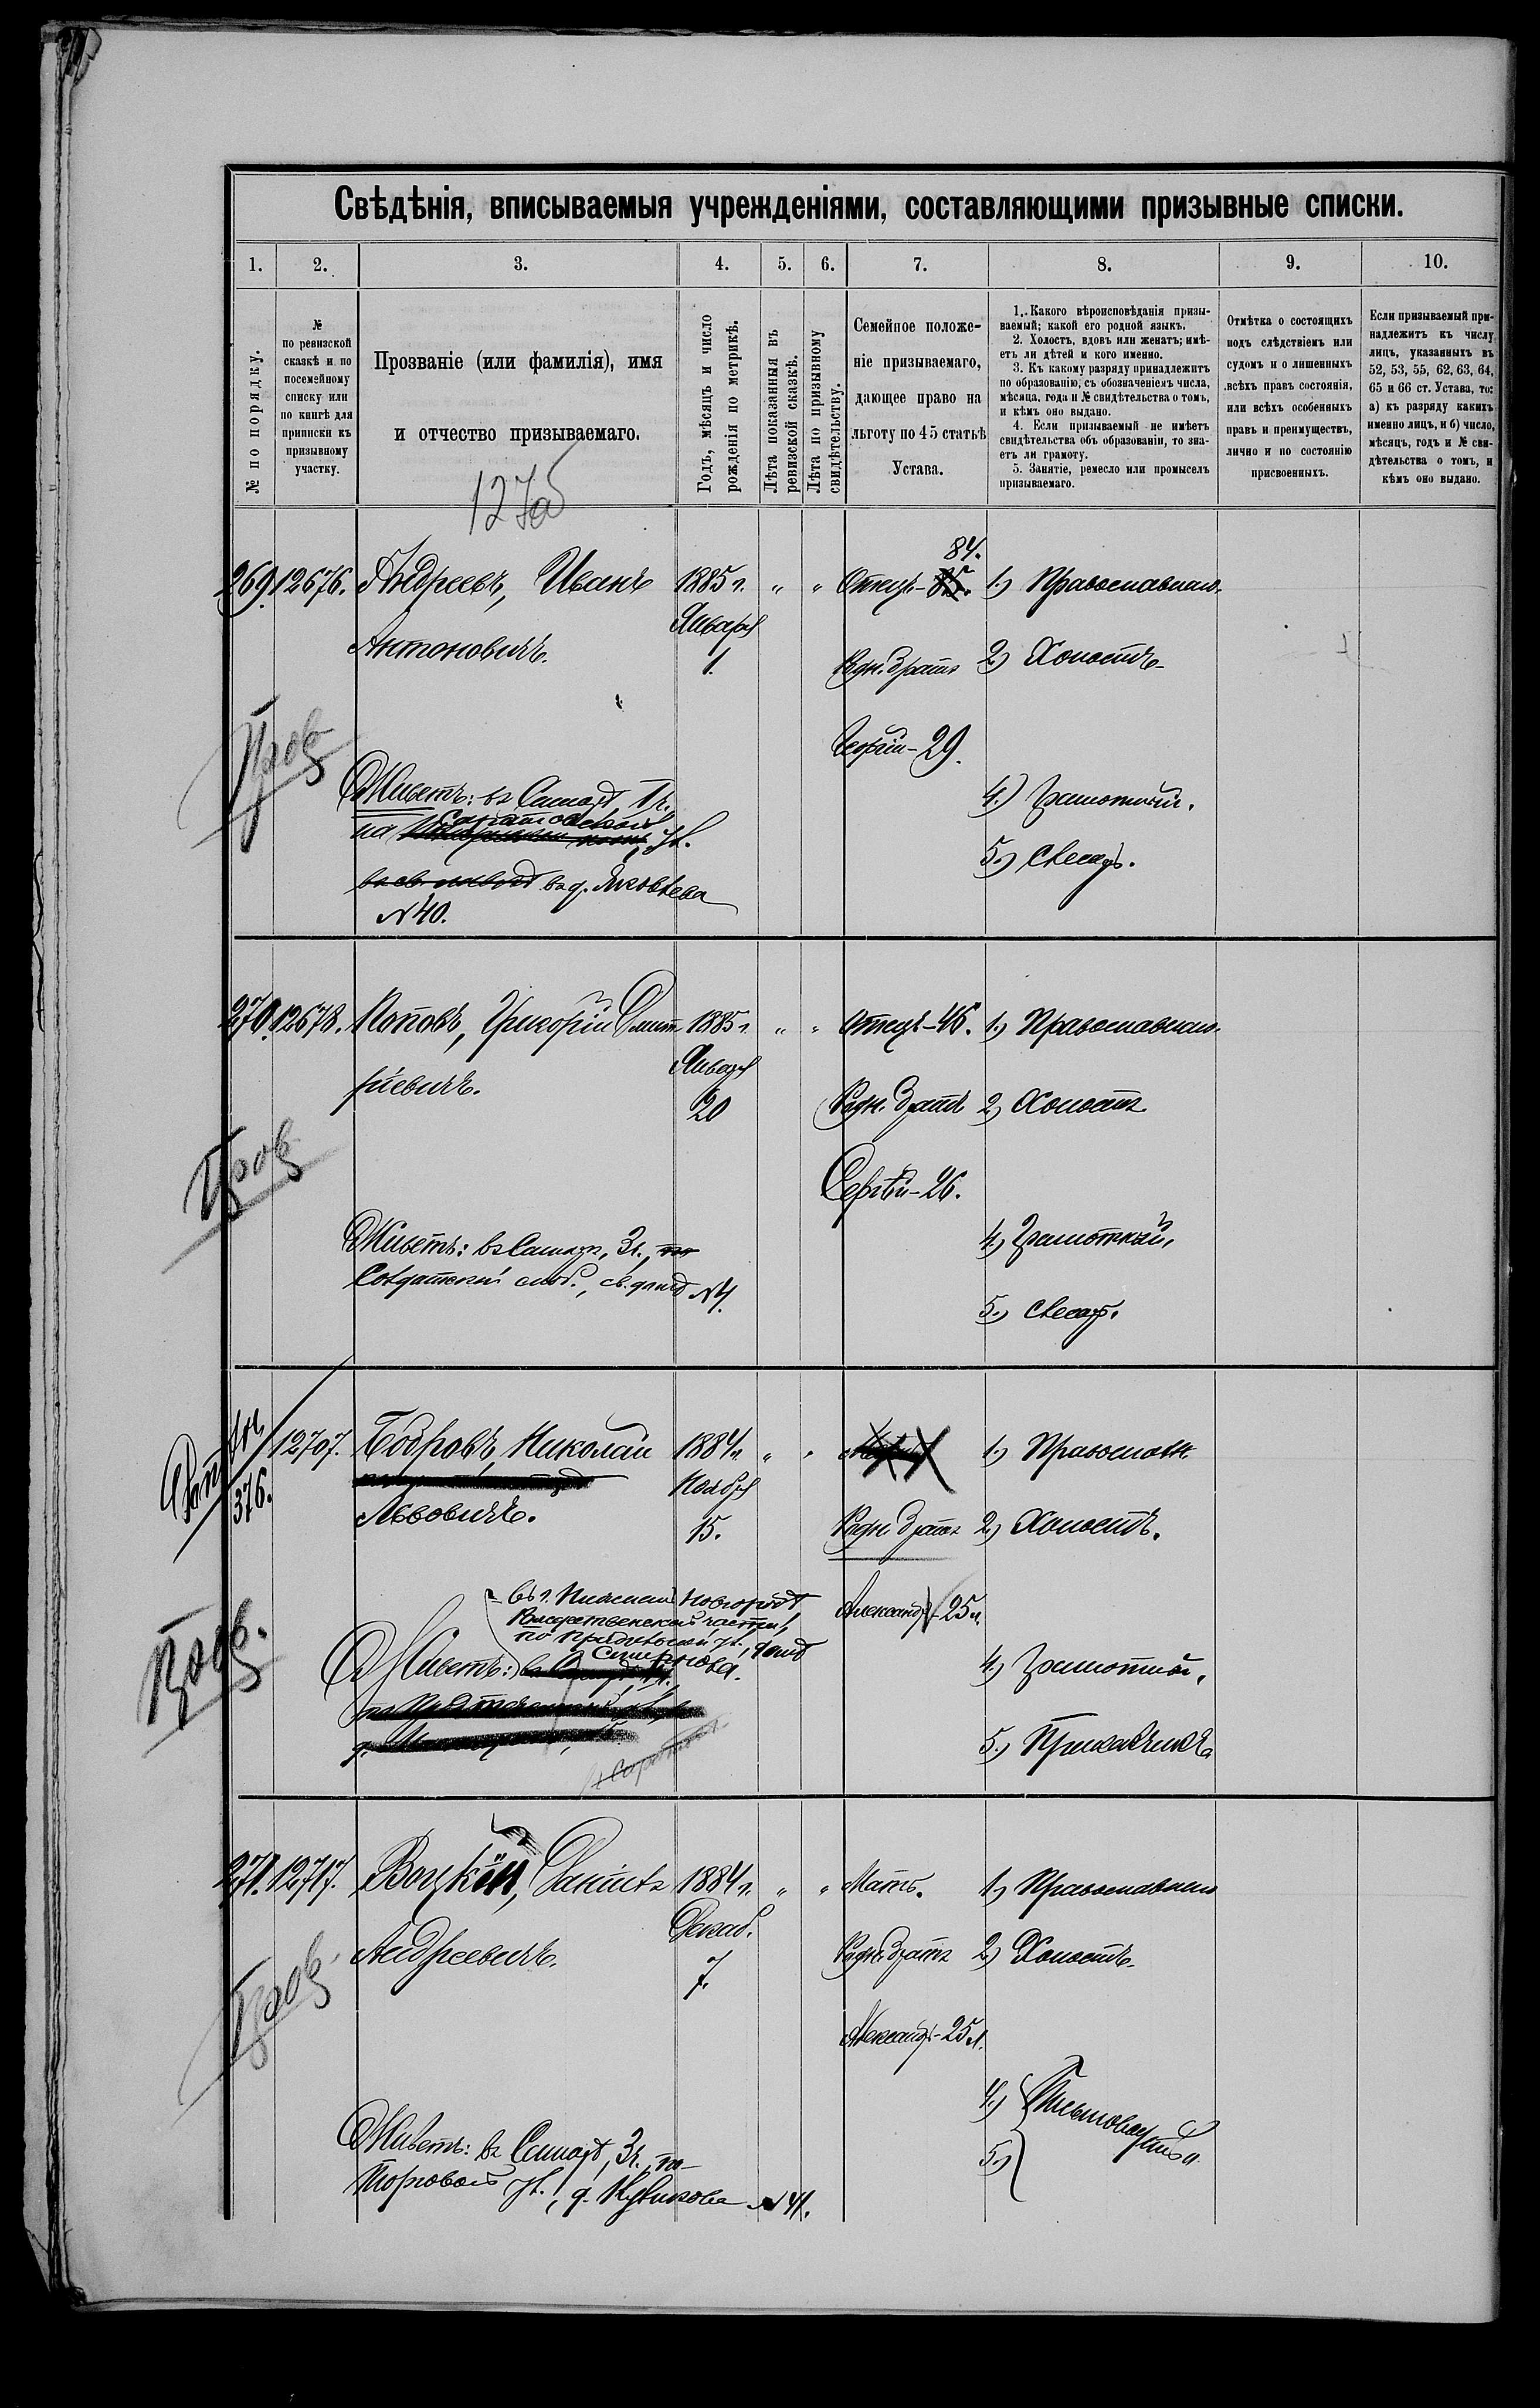 Свѣдѣнія, вписываемыя учрежденіями, составляющими призывные списки.
1. 2. 3. 4. 5. 6. 7. 8. 9. 10.
№ по порядку.
№
по ревизской
сказкѣ и по
посемейному
списку или
по книгѣ для
приписки къ
призывному
участку.
Прозваніе (или фамилія), имя
и отчество призываемаго.
Годъ, мѣсяцъ и число
рожденія по метрикѣ.
Лѣта показанныя въ
ревизской сказкѣ.
Лѣта по призывному
свидѣтельству.
Семейное положе-
ніе призываемаго,
дающее право на
льготу по 45 статьѣ
Устава.
1. Какого вѣроисповѣданія призы-
ваемый; какой его родной языкъ.
2. Холостъ, вдовъ или женатъ; имѣ-
етъ ли дѣтей и кого именно.
3. Къ какому разряду принадлежитъ
по образованію, съ обозначеніемъ числа,
мѣсяца, года и № свидѣтельства о томъ,
и кѣмъ оно выдано.
4. Если призываемый не имѣетъ
свидѣтельства объ образованіи, то зна-
етъ ли грамоту.
5. Занятіе, ремесло или промыселъ
призываемаго.
Отмѣтка о состоящихъ
подъ слѣдствіемъ или
судомъ и о лишенныхъ
всѣхъ правъ состоянія,
или всѣхъ особенныхъ
правъ и преимуществъ,
лично и по состоянію
присвоенныхъ.
Если призываемый при-
надлежитъ къ числу
лицъ, указанныхъ въ
52, 53, 55, 62, 63, 64,
65 и 66 ст. Устава, то:
а) къ разряду какихъ
именно лицъ, и б) число,
мѣсяцъ, годъ и № сви-
дѣтельства о томъ, и
кѣмъ оно выдано.
84.
269. 12676. Андреевъ, Иванъ 1885 г. " " Отецъ- 1.) Православнаго.
Антоновичъ. Января
1. Родн. братъ 2.) Холостъ.
Георгій-29.
Пров
Живетъ: въ Самарѣ, 1 ч. 4.) Грамотный.
Саратовской
на ул.
5.) Слесарь.
въ д. Яковлева
N 40.
270. 12678. Поповъ, Григорій Дмит- 1885 г. " " Отецъ-46. 1.) Православнаго.
ріевичъ. Января
20 Родн. братъ 2.) Холостъ
Пров Сергѣй-26.
Живетъ: въ Самарѣ, 3 ч., 4.) Грамотный,
Солдатской слоб., св. домѣ N 4.
5.) Слесарь.
376. 12707. Бобровъ, Николай 1884 г. " " 1.) Православн.
Львовичъ. Ноября
15. Родн. братъ 2.) Холостъ.
въ г. Нижнемъ Новгородѣ, Александръ-25 л.
части,
по ул., домѣ
Смирнова.
Пров. Живетъ: 4.) Грамотный,
5.) Приказчикъ
271. 12717. Данилъ 1884 г. " " Мать. 1.) Православнаго
Андреевичъ. Декаб.
7. Родн. братъ 2.) Холостъ.
Пров Александръ-25 л.
4.)
5.)
Живетъ: въ Самарѣ, 3 ч., по
Торговой ул., д. N 41.